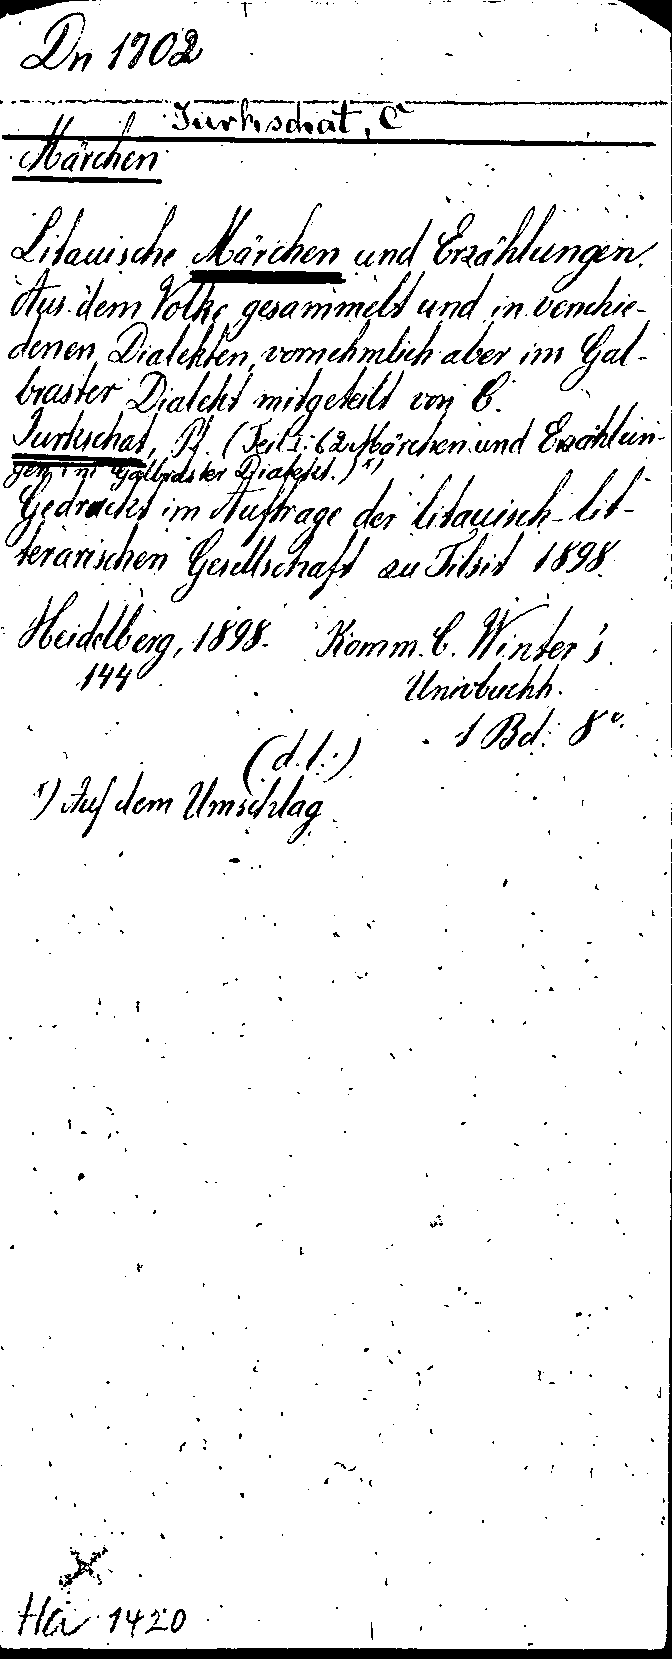 Dn 1702
Jurkschat, C
Märchen
Litauische Märchen und Erzählungen.
Aus dem Volke gesammelt und in verschie-
denen Dialekten, vornehmlich aber im Gal-
braster Dialekt mitgeteilt von C.
Jurkschat, Pf. (Teil 1: 62 Märchen und Erzählun-
gen im Galbraster Dialekt.) 1)
Gedruckt im Auftrage der litauisch-lit-
terarischen Gesellschaft zu Tilsit 1898.
Heidelberg, 1898. Komm. C. Winter's
144 Univbuchh.
1 Bd. 8°.
(d. l.:)
1) Auf dem Umschlag
Ha 1420